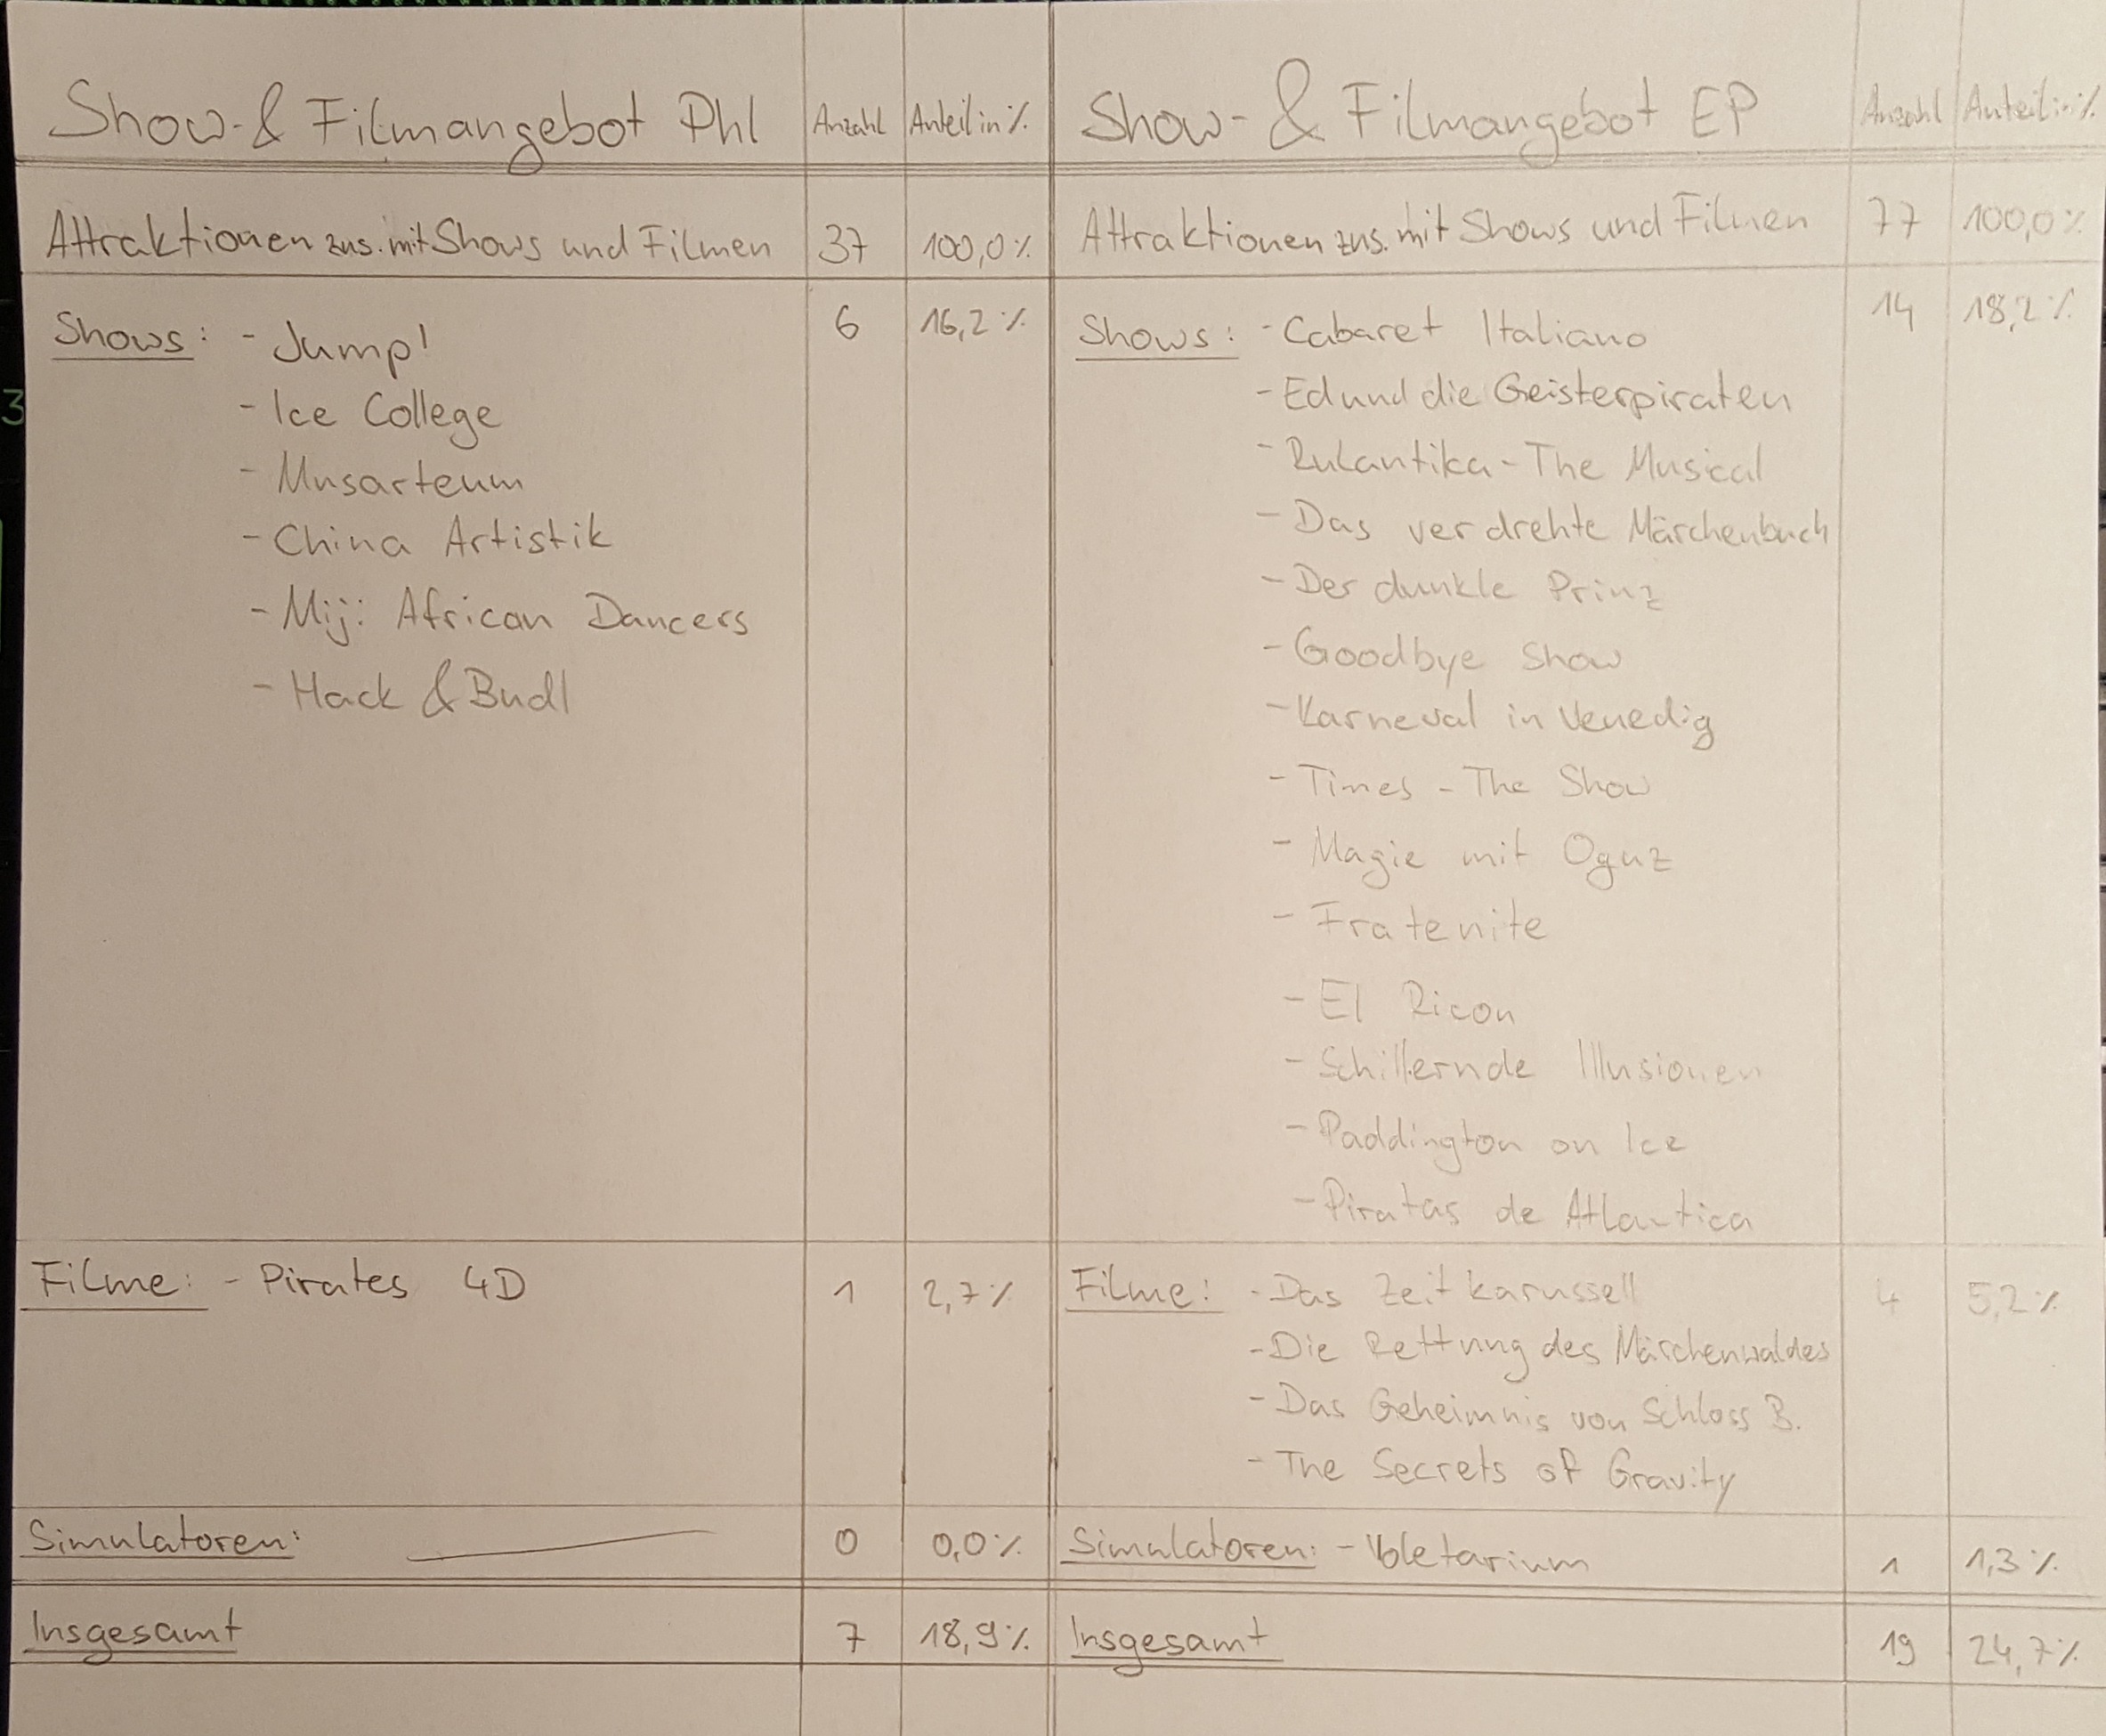 Show- & Filmangebot Phl Anzahl Anteil in %
Attraktionen zus. mit Shows und Filmen 37 100,0 %
Shows: - Jump! 6 16,2 %
- Ice College
- Musarteum
- China Artistik
- Miji African Dancers
- Hack & Budl
Filme: - Pirates 4D 1 2,7 %
Simulatoren: 0 0,0 %
Insgesamt 7 18,9 %
Show- & Filmangebot EP Anzahl Anteil in %
Attraktionen zus. mit Shows und Filmen 77 100,0 %
Shows: - Cabaret Italiano 14 18,2 %
- Ed und die Geisterpiraten
- Rulantika - The Musical
- Das verdrehte Märchenbuch
- Der dunkle Prinz
- Goodbye Show
- Karneval in Venedig
- Times - The Show
- Magie mit Oguz
- Fratenite
- El Ricon
- Schillernde Illusionen
- Paddington on Ice
- Piratas de Atlantica
Filme: - Das Zeitkarussell 4 5,2 %
- Die Rettung des Märchenwaldes
- Das Geheimnis von Schloss B.
- The Secrets of Gravity
Simulatoren: - Voletarium 1 1,3 %
Insgesamt 19 24,7 %
3